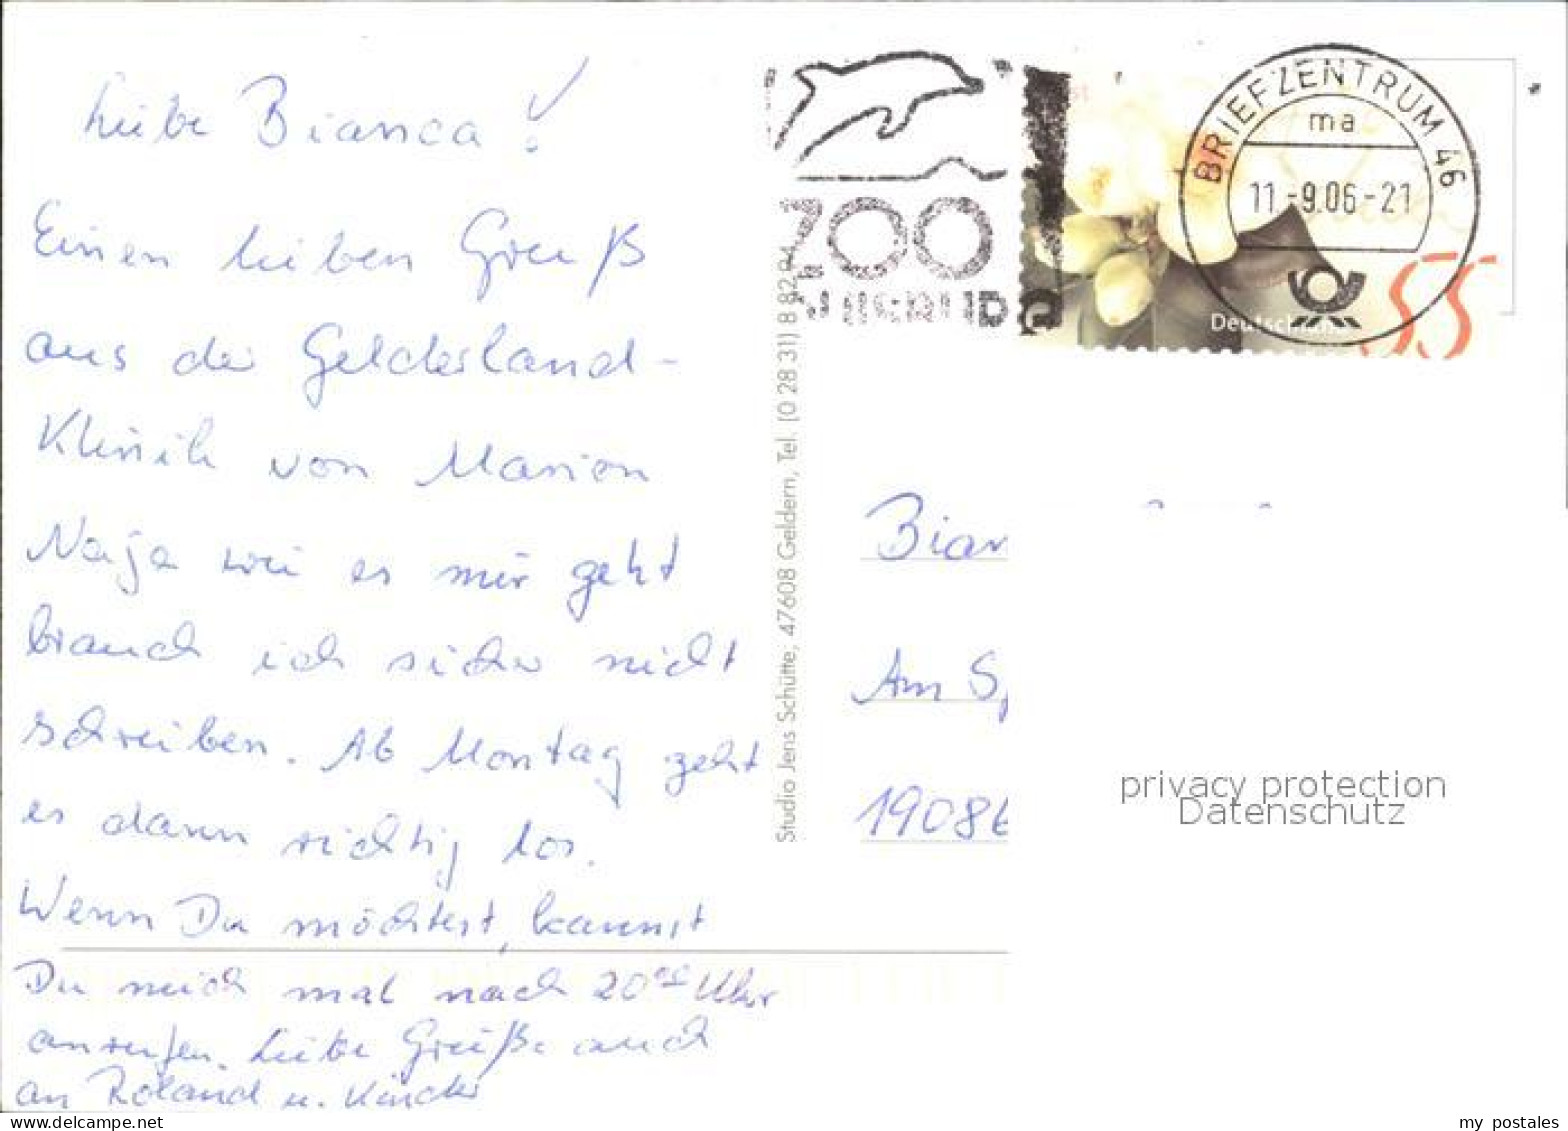 Liebe Bianca!
Einen lieben Gruß
aus der Gelderland-
Klinik von Marion
Naja wie es mir geht
brauch ich sicher nicht
schreiben. Ab Montag geht
es dann richtig los.
Wenn Du möchtest, kannst
Du mich mal nach 20⁰⁰ Uhr
anrufen. Liebe Grüße auch
an Roland u. Kinder
Studio Jens Schütte, 47608 Geldern, Tel. (0 28 31) 8 82 94
ZOO
BRIEFZENTRUM 46
ma
11.-9.06-21
Deutschland
55
Bian
Am Sp
19086
privacy protection
Datenschutz
my postales